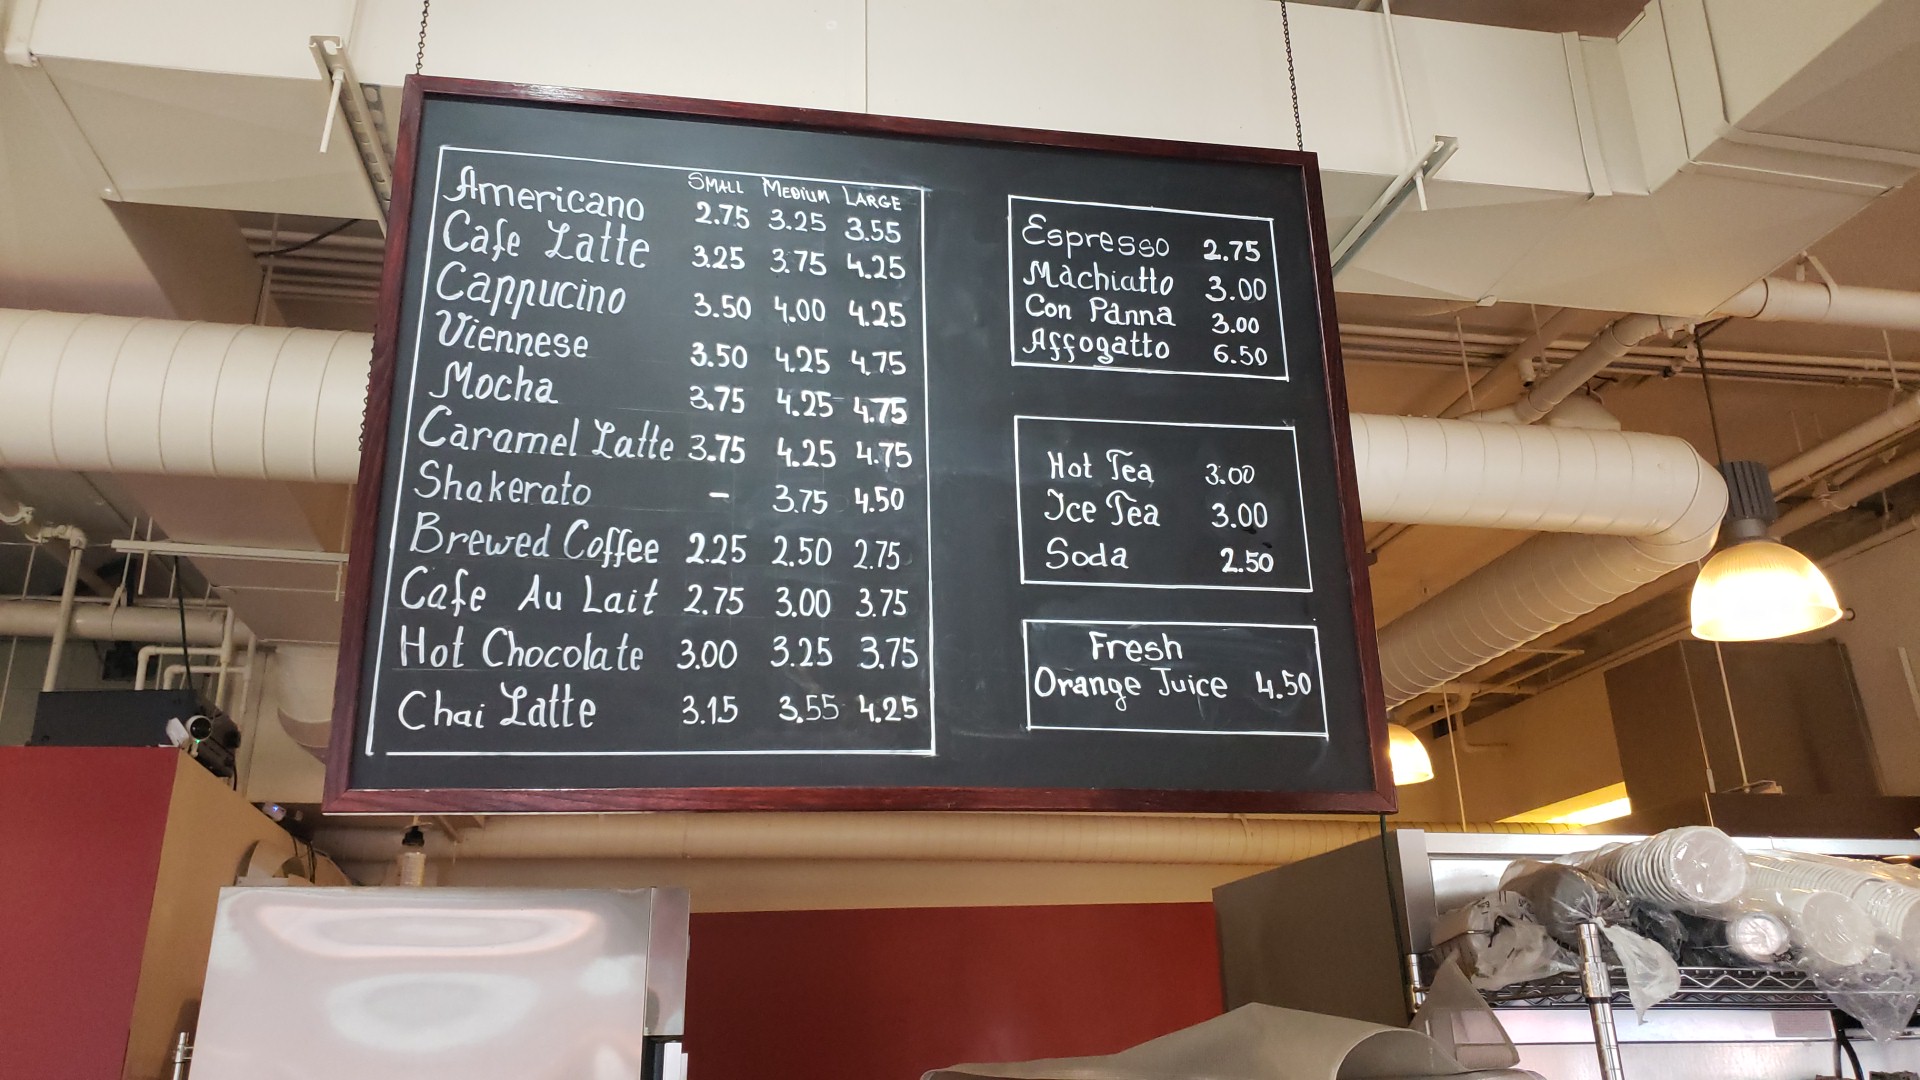 SMALL MEDIUM LARGE
Americano 2.75 3.25 3.55
Cafe Latte 3.25 3.75 4.25
Cappucino 3.50 4.00 4.25
Viennese 3.50 4.25 4.75
Mocha 3.75 4.25 4.75
Caramel Latte 3.75 4.25 4.75
Shakerato - 3.75 4.50
Brewed Coffee 2.25 2.50 2.75
Cafe Au Lait 2.75 3.00 3.75
Hot Chocolate 3.00 3.25 3.75
Chai Latte 3.15 3.55 4.25
Espresso 2.75
Machiatto 3.00
Con Panna 3.00
Affogatto 6.50
Hot Tea 3.00
Ice Tea 3.00
Soda 2.50
Fresh
Orange Juice 4.50